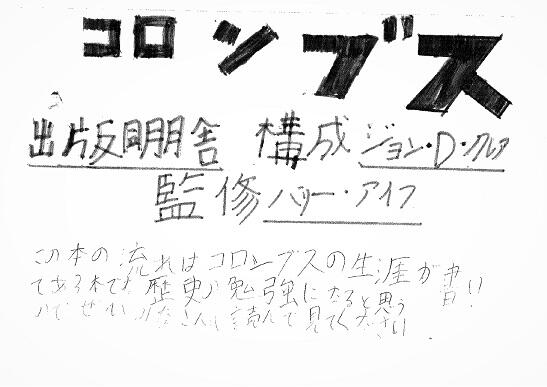 コロンブス
出版同朋舎 構成ジョン・D・クレア
監修ハリー・アイフ
この本の流れはコロンブスの生涯が書い
てある本で歴史の勉強になると思う
のでぜひみなさんも読んで見てください